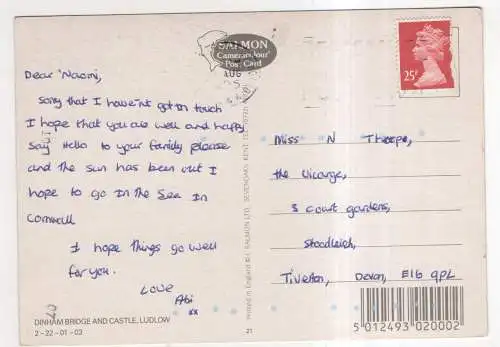 SALMON
Cameracolour
Post Card
25P
Dear Naomi,
Sorry that I havent got in touch
I hope that you are well and happy
Say Hello to your family please
and the sun has been out I
hope to go in the sea in
Cornwall
I hope things go well
for you.
Love
Abi
xx
Miss N Thorpe,
the Vicarge,
3 court gardens,
Stoodleigh,
Tiverton, Devon, E16 9PL
DINHAM BRIDGE AND CASTLE, LUDLOW
2-22-01-03
Printed in England © J. SALMON LTD., SEVENOAKS, KENT
21
5 012493 020002